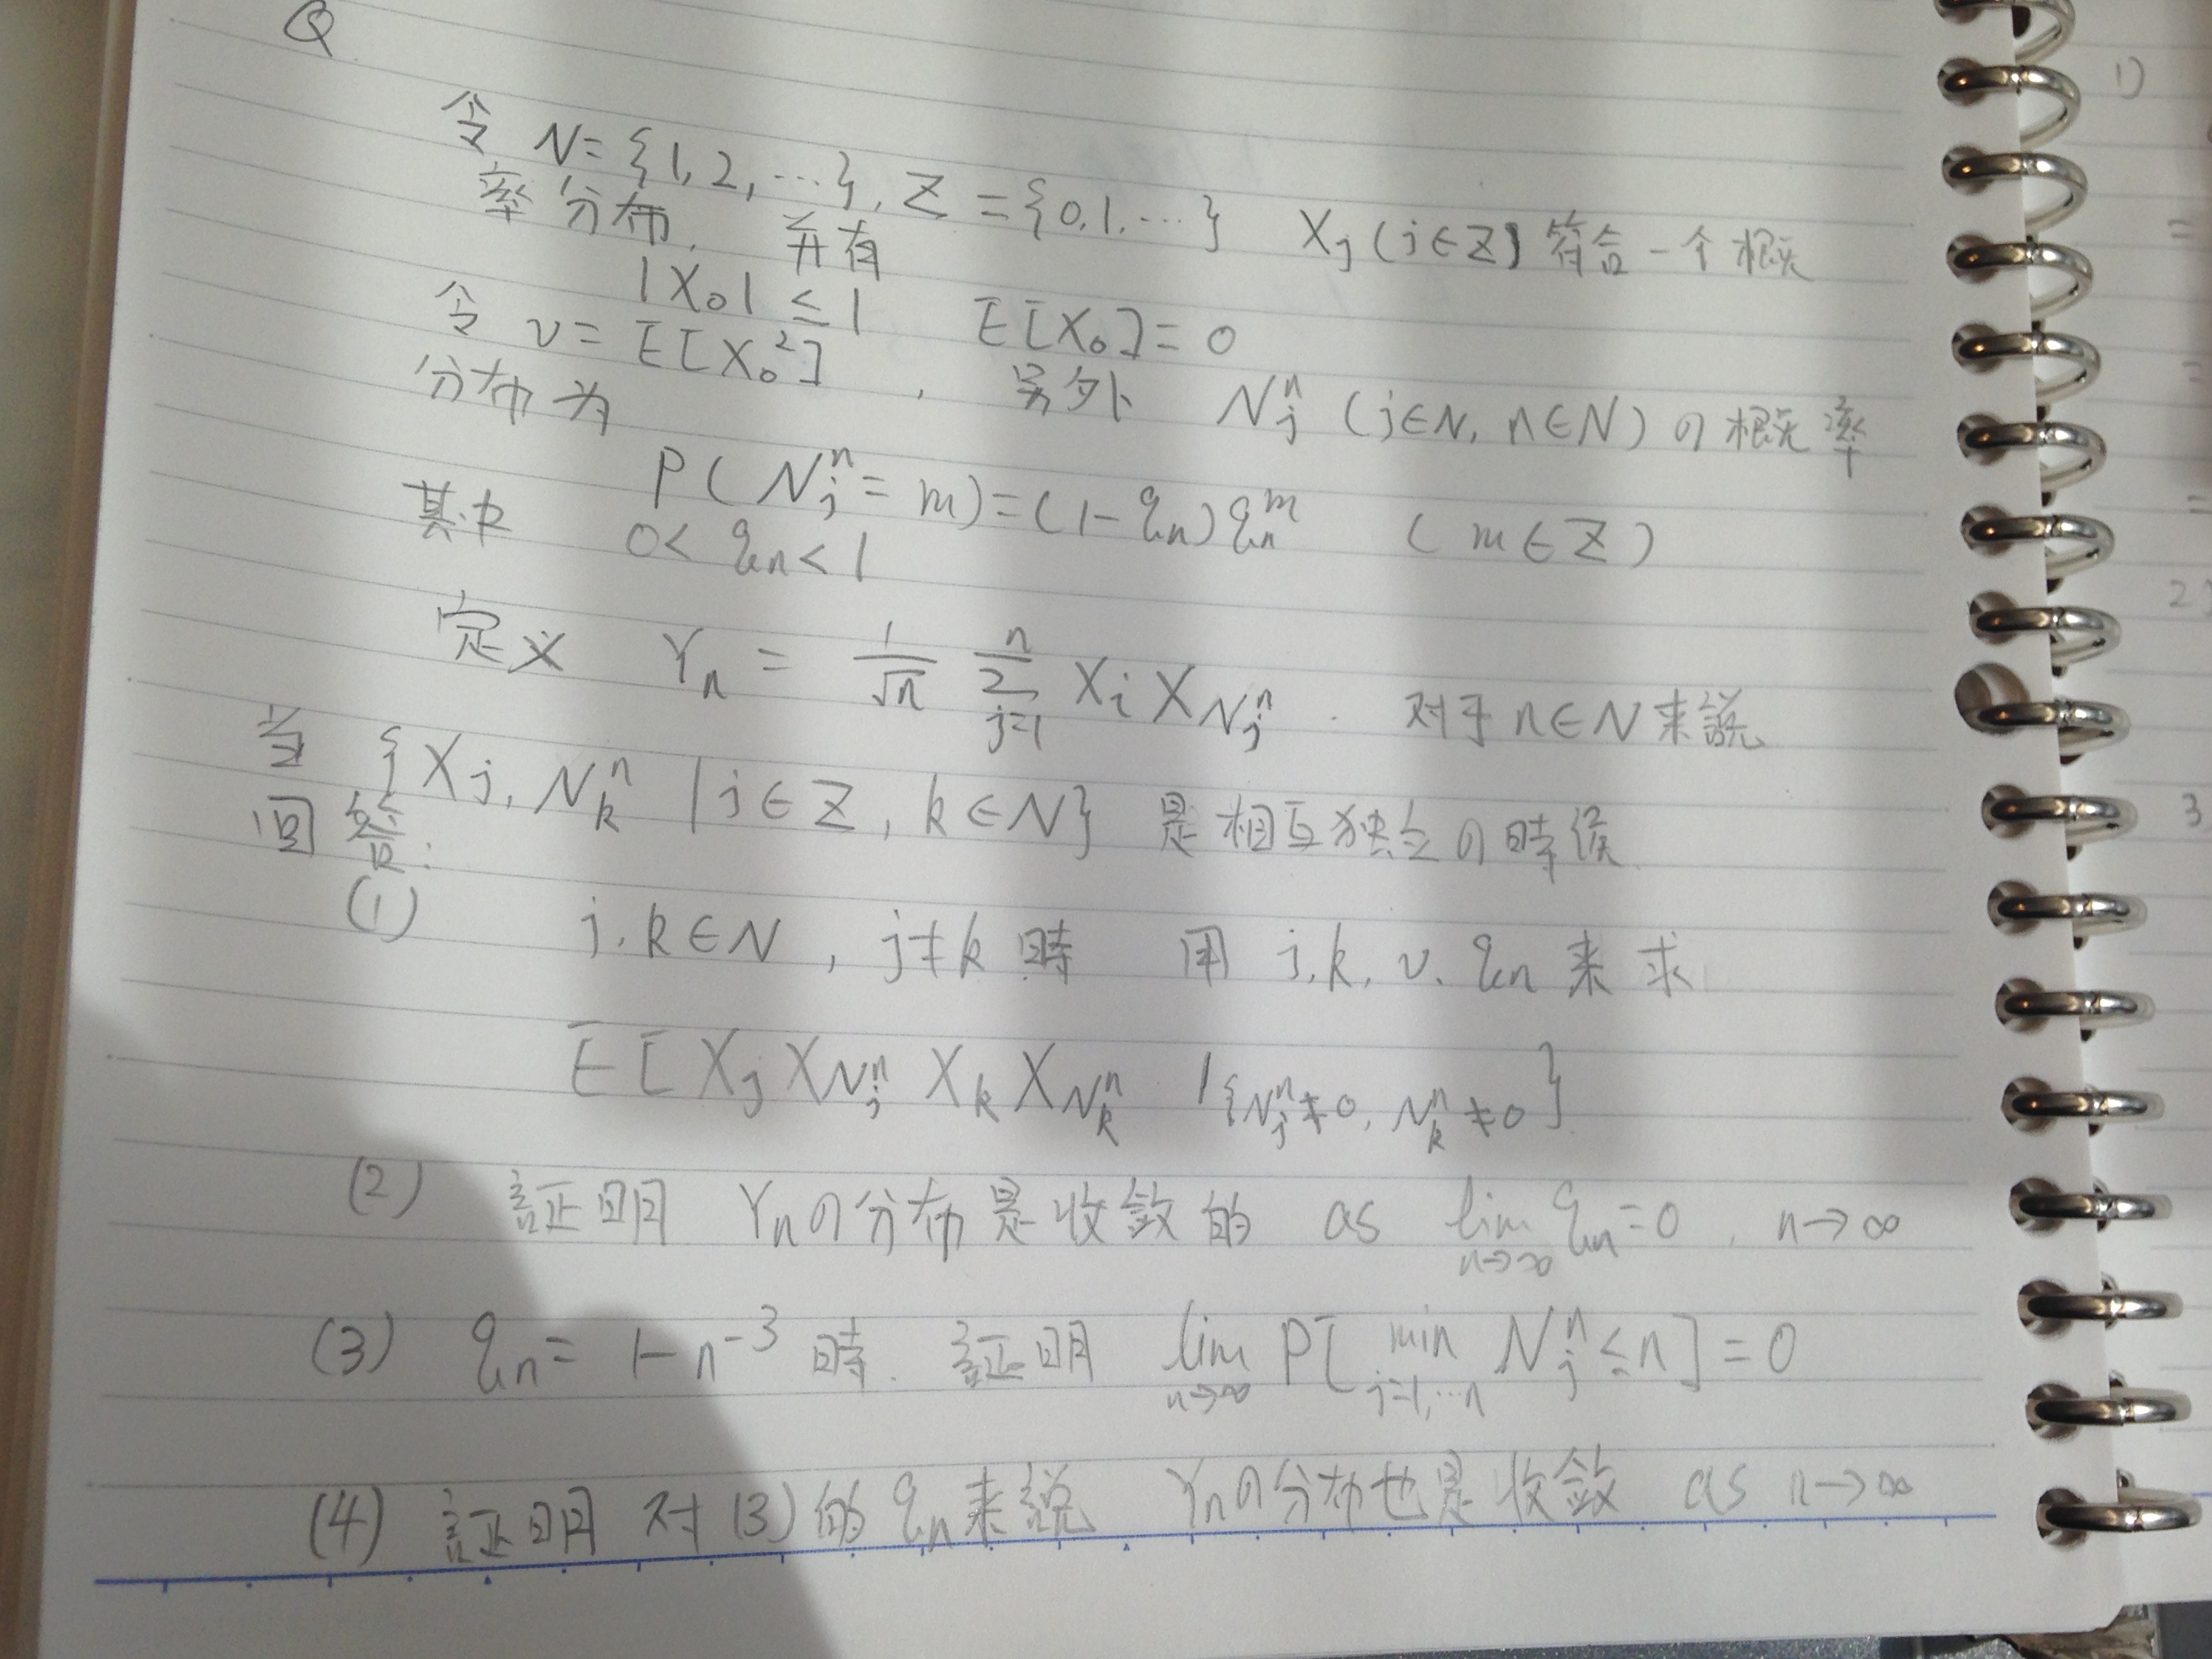 Q
令 N={1,2,…}, Z={0,1,…} Xj (j∈Z) 符合一个概
率分布, 并有
|X₀| ≤ 1 E[X₀]=0
令 v=E[X₀²], 另外 Nⱼⁿ (j∈N, n∈N) の概率
分布为
P(Nⱼⁿ=m)=(1-qₙ)qₙᵐ (m∈Z)
其中 0<qₙ<1
定义 Yₙ = 1/√n Σ_{j=1}^{n} Xᵢ X_{Nⱼⁿ}. 对于n∈N来説
当 {Xj, Nₖⁿ | j∈Z, k∈N} 是相互独立の時候
回答:
(1) j.k∈N, j≠k 時 用 j.k, v. qₙ 来求
E[Xⱼ X_{Nⱼⁿ} Xₖ X_{Nₖⁿ} 1_{{Nⱼⁿ≠0, Nₖⁿ≠0}}]
(2) 証明 Yₙの分布是收敛的 as lim_{n→∞} qₙ=0, n→∞
(3) qₙ= 1-n⁻³ 時. 証明 lim_{n→∞} P[min_{j=1,…n} Nⱼⁿ≤n]=0
(4) 証明 对(3)的 qₙ来説 Yₙの分布也是收敛 as n→∞
1)
=
=
=
2)
3